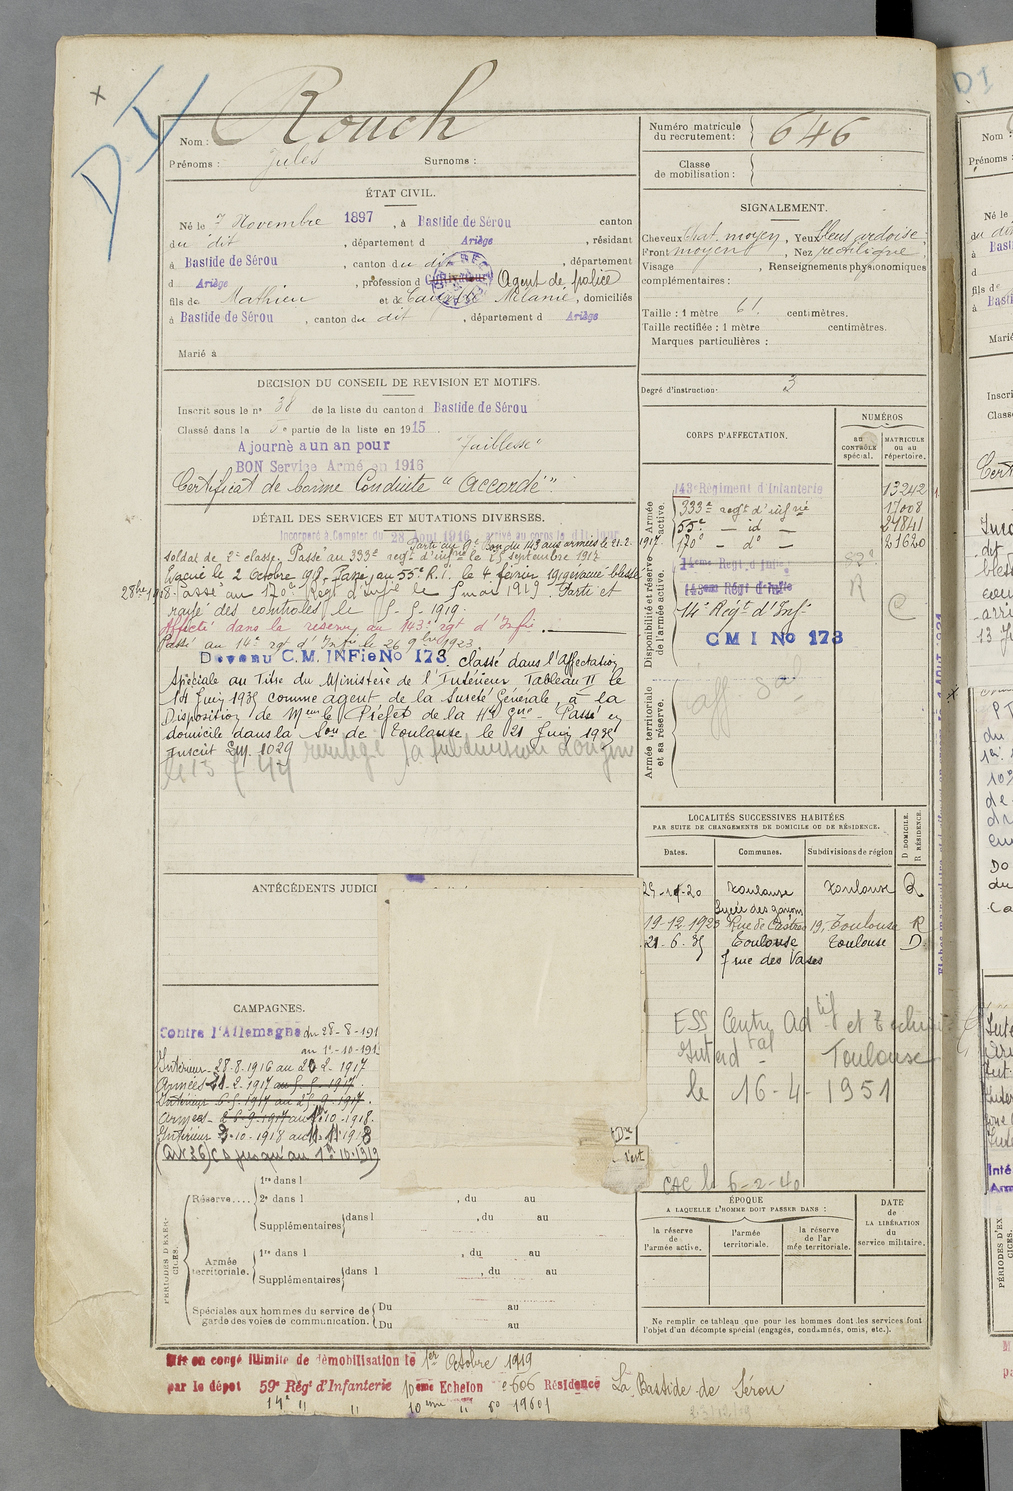 D I
Nom : Rouch
Prénoms : Jules Surnoms :
Numéro matricule du recrutement : 646
Classe de mobilisation :
ÉTAT CIVIL.
Né le 7 Novembre 1897, à Bastide de Sérou canton
du dit, département d Ariège, résidant
à Bastide de Sérou, canton du dit, département
d Ariège, profession d Cultivateur Agent de police
fils de Mathieu et de Mélanie, domiciliés
à Bastide de Sérou, canton du dit, département d Ariège
Marié à
SIGNALEMENT.
Cheveux chat. moyen, Yeux bleus ardoise
Front moyen, Nez rectiligne
Visage , Renseignements physionomiques
complémentaires :
Taille : 1 mètre 61. centimètres.
Taille rectifiée : 1 mètre centimètres.
Marques particulières :
Degré d'instruction 3
DECISION DU CONSEIL DE REVISION ET MOTIFS.
Inscrit sous le n° 38 de la liste du canton d Bastide de Sérou
Classé dans la 5e partie de la liste en 1915
Ajourné a un an pour "Faiblesse"
BON Service Armé en 1916
Certificat de bonne Conduite "Accordé".
DÉTAIL DES SERVICES ET MUTATIONS DIVERSES.
Incorporé à Compter du 28 Aout 1916 arrivé au corps le dit jour
Parti au 9e Bon du 143 aux armées le 21.2.1917
soldat de 2e classe. Passé au 333e regt d'infie le 25 septembre 1917
Evacué le 2 Octobre 1918. Passé au 55e R.I. le 4 février 1919 évacué blessé
Passé au 170e Régt d'Infie le 5 mai 1919. Parti et
rayé des controles le 5-5-1919.
Affecté dans la réserve au 143e rgt d'Infie.
Passé au 14e rgt d'Infie le 26 9bre 1923
Devenu C.M. INFie No 173. classé dans l'Affectation
spéciale au Titre du Ministère de l'Intérieur Tableau II le
14 Juin 1935 comme agent de la Sureté Générale, à la
Disposition de Mr le Préfet de la Hte Gne - Passé en
domicile dans la Son de Toulouse le 21 Juin 1935
Inscrit 1029
le 13 7 44
CORPS D'AFFECTATION.
NUMÉROS
au CONTRÔLE spécial.
MATRICULE ou au répertoire.
Armée active.
143e Régiment d'Infanterie 13242
333e regt d'infie 17008
55e - id - 24841
170e - do - 23620
Disponibilité et réserve de l'armée active.
14eme Regt d'Infie
143eme Régt d'Infie
14e Régt d'Infie
CMI No 173
R
C
Armée territoriale et sa réserve.
aff. sal
LOCALITÉS SUCCESSIVES HABITÉES
PAR SUITE DE CHANGEMENTS DE DOMICILE OU DE RÉSIDENCE.
Dates. Communes. Subdivisions de région D DOMICILE. R RÉSIDENCE.
Toulouse Toulouse R
Lycée des garçons
19-12-1923 Rue de Castres 19, Toulouse R
21.6.35 Toulouse Toulouse D.
7 rue des Vases
ESS Centre Adtif et Techni
Intend tal Toulouse
le 16-4-1951
CAC le 6-2-40
ANTÉCÉDENTS JUDICI
CAMPAGNES.
Contre l'Allemagne du 28-8-191
au 1-10-191
Intérieur 28-8-1916 au 20-2-1917
Armées 21-2-1917 au 5-5-1917
Intérieur 6-5-1917 au 25-9-1917.
Armées 26-9-1917 au 10-1918.
Intérieur 3-10-1918 au 11.11.1918
(Art 36) CD jusqu'au 1er 10.1919
PÉRIODES D'EXERCICES.
Réserve....
1re dans l
2e dans l , du au
Supplémentaires dans l , du au
Armée territoriale.
1re dans l , du au
Supplémentaires dans l , du au
Spéciales aux hommes du service de garde des voies de communication.
Du au
Du au
ÉPOQUE
A LAQUELLE L'HOMME DOIT PASSER DANS :
la réserve de l'armée active.
l'armée territoriale.
la réserve de l'armée territoriale.
DATE de LA LIBÉRATION du service militaire.
Ne remplir ce tableau que pour les hommes dont les services font
l'objet d'un décompte spécial (engagés, condamnés, omis, etc.).
Mis en congé illimité de démobilisation le 1er Octobre 1919
par le dépôt 59e Régt d'Infanterie 10eme Echelon 606 Résidence La Bastide de Sérou
14e " " 10eme "